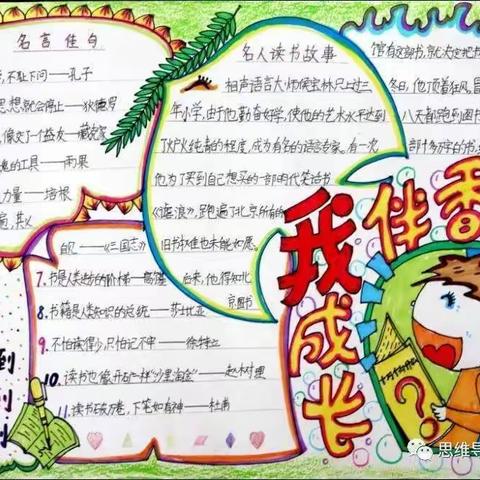 名言佳句
不耻下问——孔子
思想就会停止——狄德罗
像交了一个益友——臧克家
的工具——雨果
力量——培根
遍,其义
自见——《三国志》
7.书是人类进步的阶梯——高尔基
8.书籍是人类知识的总统——莎士比亚
9.不怕读得少,只怕记不牢——徐特立
10.读书也像开矿一样"沙里淘金"——赵树理
11.读书破万卷,下笔如有神——杜甫
名人读书故事
相声语言大师侯宝林只上过三
年小学,由于他勤奋好学,使他的艺术水平达到
了炉火纯青的程度,成为有名的语言专家。有一次,
他为了买到自己想买的一部明代笑话书
《谑浪》,跑遍了北京所有的
旧书摊也未能如愿。
后来,他得知北
京图书
馆有这部书,就决定把书
冬日,他顶着狂风,冒
八天都跑到图书
部十多万字的书
香
伴
我成长
到
?
思维导